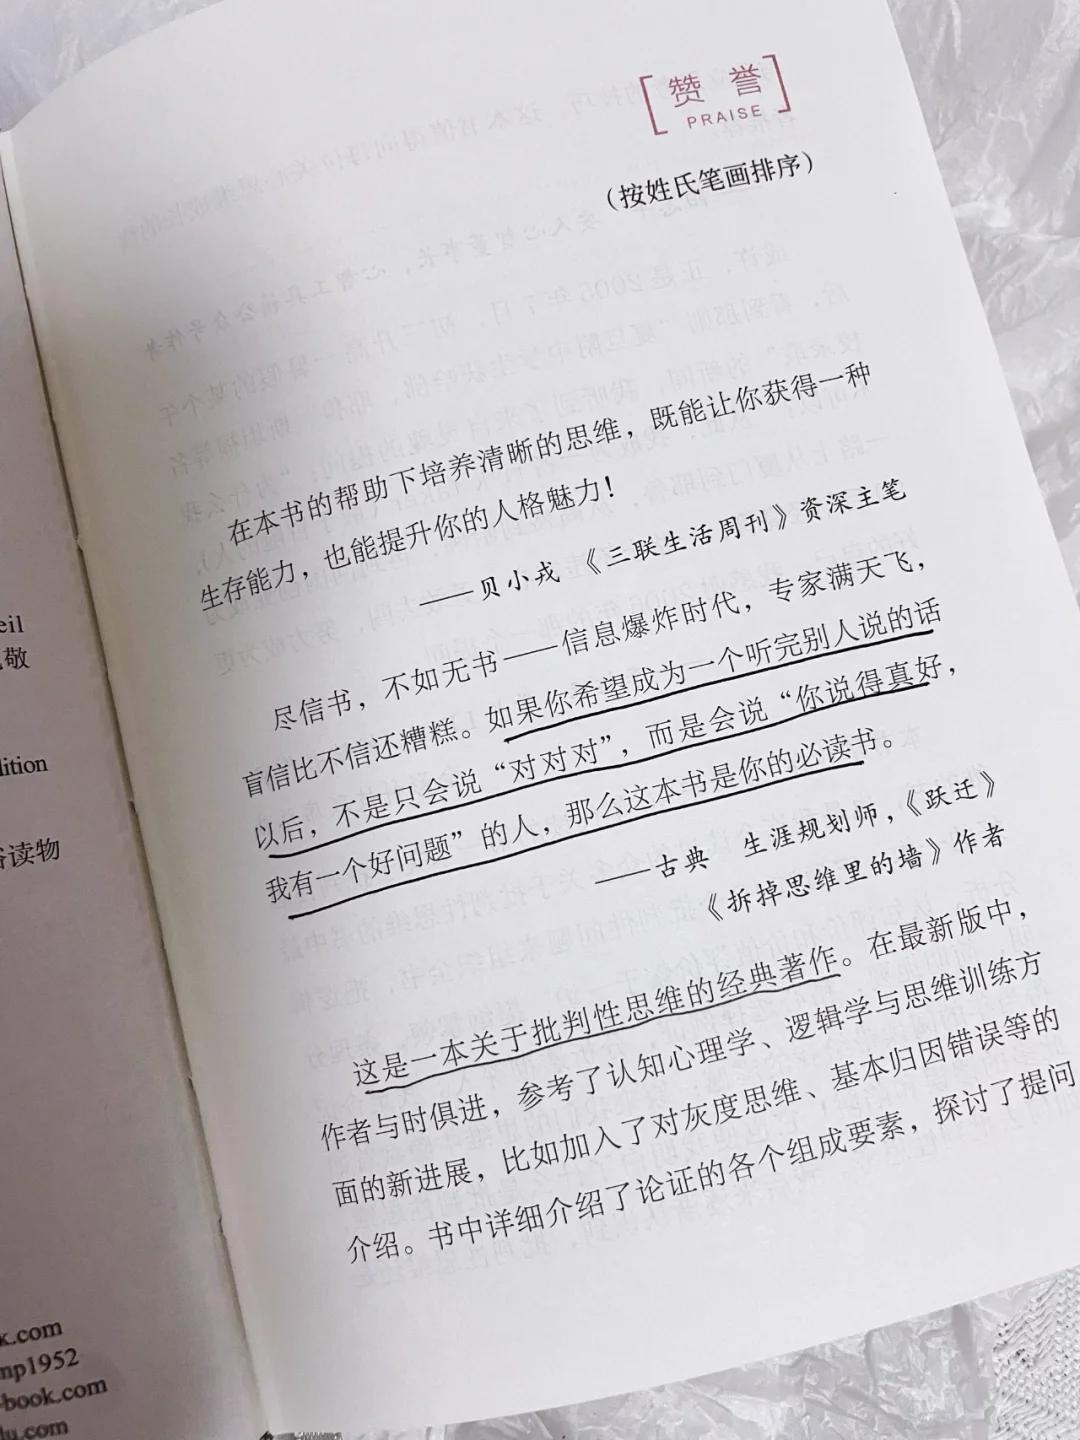 赞 誉
PRAISE
（按姓氏笔画排序）
在本书的帮助下培养清晰的思维，既能让你获得一种
生存能力，也能提升你的人格魅力！
——贝小戎 《三联生活周刊》资深主笔
尽信书，不如无书——信息爆炸时代，专家满天飞，
盲信比不信还糟糕。如果你希望成为一个听完别人说的话
以后，不是只会说“对对对”，而是会说“你说得真好，
我有一个好问题”的人，那么这本书是你的必读书。
——古典 生涯规划师，《跃迁》
《拆掉思维里的墙》作者
这是一本关于批判性思维的经典著作。在最新版中，
作者与时俱进，参考了认知心理学、逻辑学与思维训练方
面的新进展，比如加入了对灰度思维、基本归因错误等的
介绍。书中详细介绍了论证的各个组成要素，探讨了提问
eil
敬
lition
读物
k.com
mp1952
-book.com
du.com